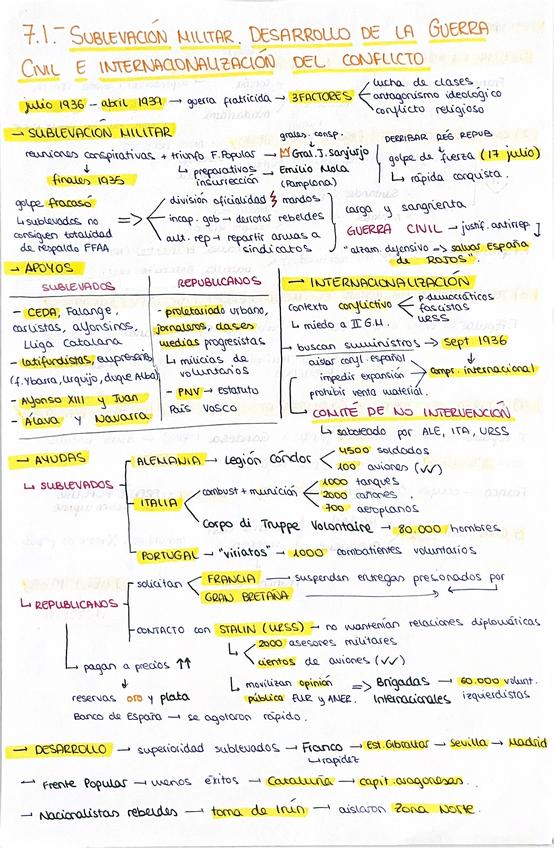 7.1.- SUBLEVACIÓN MILITAR. DESARROLLO DE LA GUERRA
CIVIL E INTERNACIONALIZACIÓN DEL CONFLICTO
julio 1936 - abril 1939 → guerra fratricida → 3 FACTORES
lucha de clases
antagonismo ideológico
conflicto religioso
→ SUBLEVACIÓN MILITAR
reuniones conspirativas + triunfo F. Popular →
finales 1935
↳ preparativos insurrección
grales. consp.
Gral. J. Sanjurjo
Emilio Mola
(Pamplona)
DERRIBAR RÉG REPUB
golpe de fuerza (17 julio)
↳ rápida conquista.
golpe fracasó
↳ sublevados no
consiguen totalidad
de respaldo FFAA
=>
división oficialidad y mandos
incap. gob → derrotar rebeldes
aut. rep → repartir armas a
sindicatos
larga y sangrienta
GUERRA CIVIL → justif. antirrep
"alzam. defensivo => salvar españa
de ROJOS".
→ APOYOS
SUBLEVADOS
- CEDA, Falange,
carlistas, alfonsinos,
Lliga Catalana
- latifundistas, empresarios
(f. Ybarra, Urquijo, duque Alba)
- Alfonso XIII y Juan
- Álava y Navarra
REPUBLICANOS
- proletariado urbano,
jornaleros, clases
medias progresistas
↳ milicias de
voluntarios
- PNV → estatuto
País Vasco
→ INTERNACIONALIZACIÓN
contexto conflictivo
p. democráticos
fascistas
URSS
↳ miedo a II G.M.
→ buscan suministros → Sept 1936
aislar confl. español
impedir expansión
prohibir venta material.
compr. internacional
COMITÉ DE NO INTERVENCIÓN
↳ saboteado por ALE, ITA, URSS.
→ AYUDAS
↳ SUBLEVADOS
ALEMANIA → Legión Cóndor
4500 soldados
100 aviones (✓✓)
ITALIA
combust + munición
1000 tanques
2000 cañones
700 aeroplanos
Corpo di Truppe Volontarie → 80.000 hombres
PORTUGAL → "viriatos" → 1000 combatientes voluntarios
↳ REPUBLICANOS
solicitan
FRANCIA → suspenden entregas presionados por
GRAN BRETAÑA
CONTACTO con STALIN (URSS) → no mantenían relaciones diplomáticas
2000 asesores militares
cientos de aviones (✓✓)
↳ movilizan opinión
pública EUR y AMER.
=> Brigadas
Internacionales
→ 60.000 volunt.
izquierdistas
↳ pagan a precios ↑↑
reservas oro y plata
Banco de España → se agotaron rápido.
→ DESARROLLO → superioridad sublevados → Franco → Est. Gibraltar → Sevilla → Madrid
↳ rapidez
→ Frente Popular → menos éxitos → Cataluña → capit. aragonesas.
→ Nacionalistas rebeldes → toma de Irún → aislaron Zona Norte.